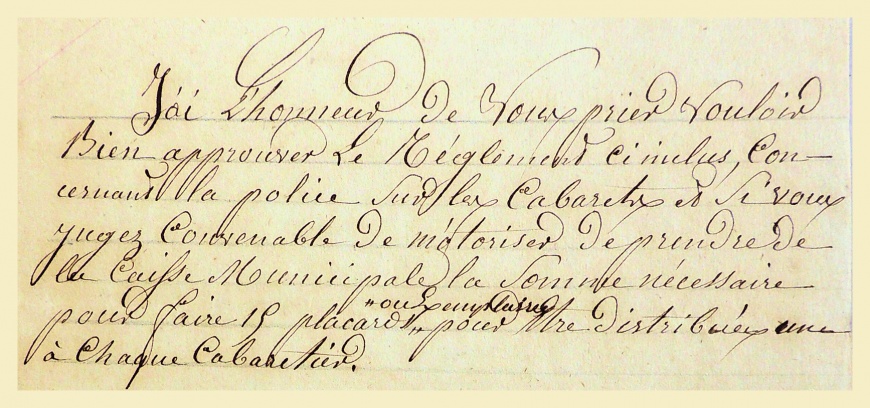 J'ai L'honneur de Vous prier Vouloir
Bien approuver Le Réglement ci inclus, Con-
cernant la police Sur les Cabarets et Si vous
jugez Convenable de m'atoriser de prendre de
la Caisse Municipale la Somme nécessaire
"ou Exemplaires"
pour faire 15 placards pour être distribuées une
à Chaque Cabaretier.